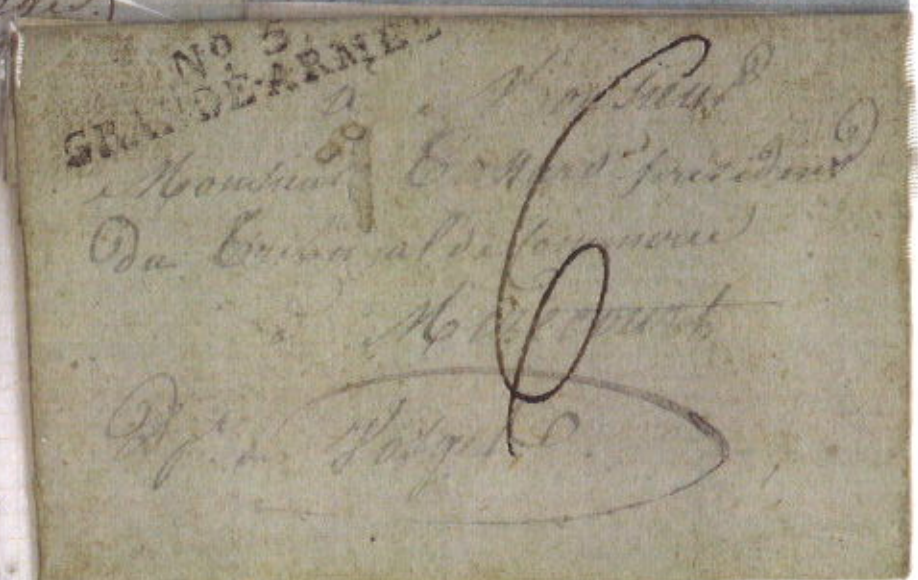 No 5.
GRANDE-ARMEE
a Monsieur
Monsieur président
Du Tribunal de commerce
a Mirecourt
Dpt. des Vosges
6